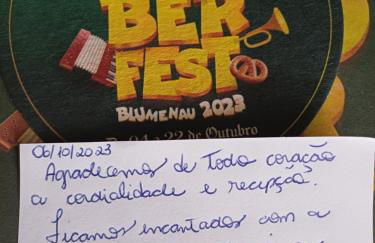 BER
FEST
BLUMENAU 2023
De 04 a 22 de Outubro
06/10/2023
Agradecemos de todo coração
a cordialidade e recepção.
Ficamos encantados com a